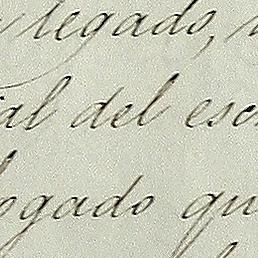 legado,
al del esc
ogado qu